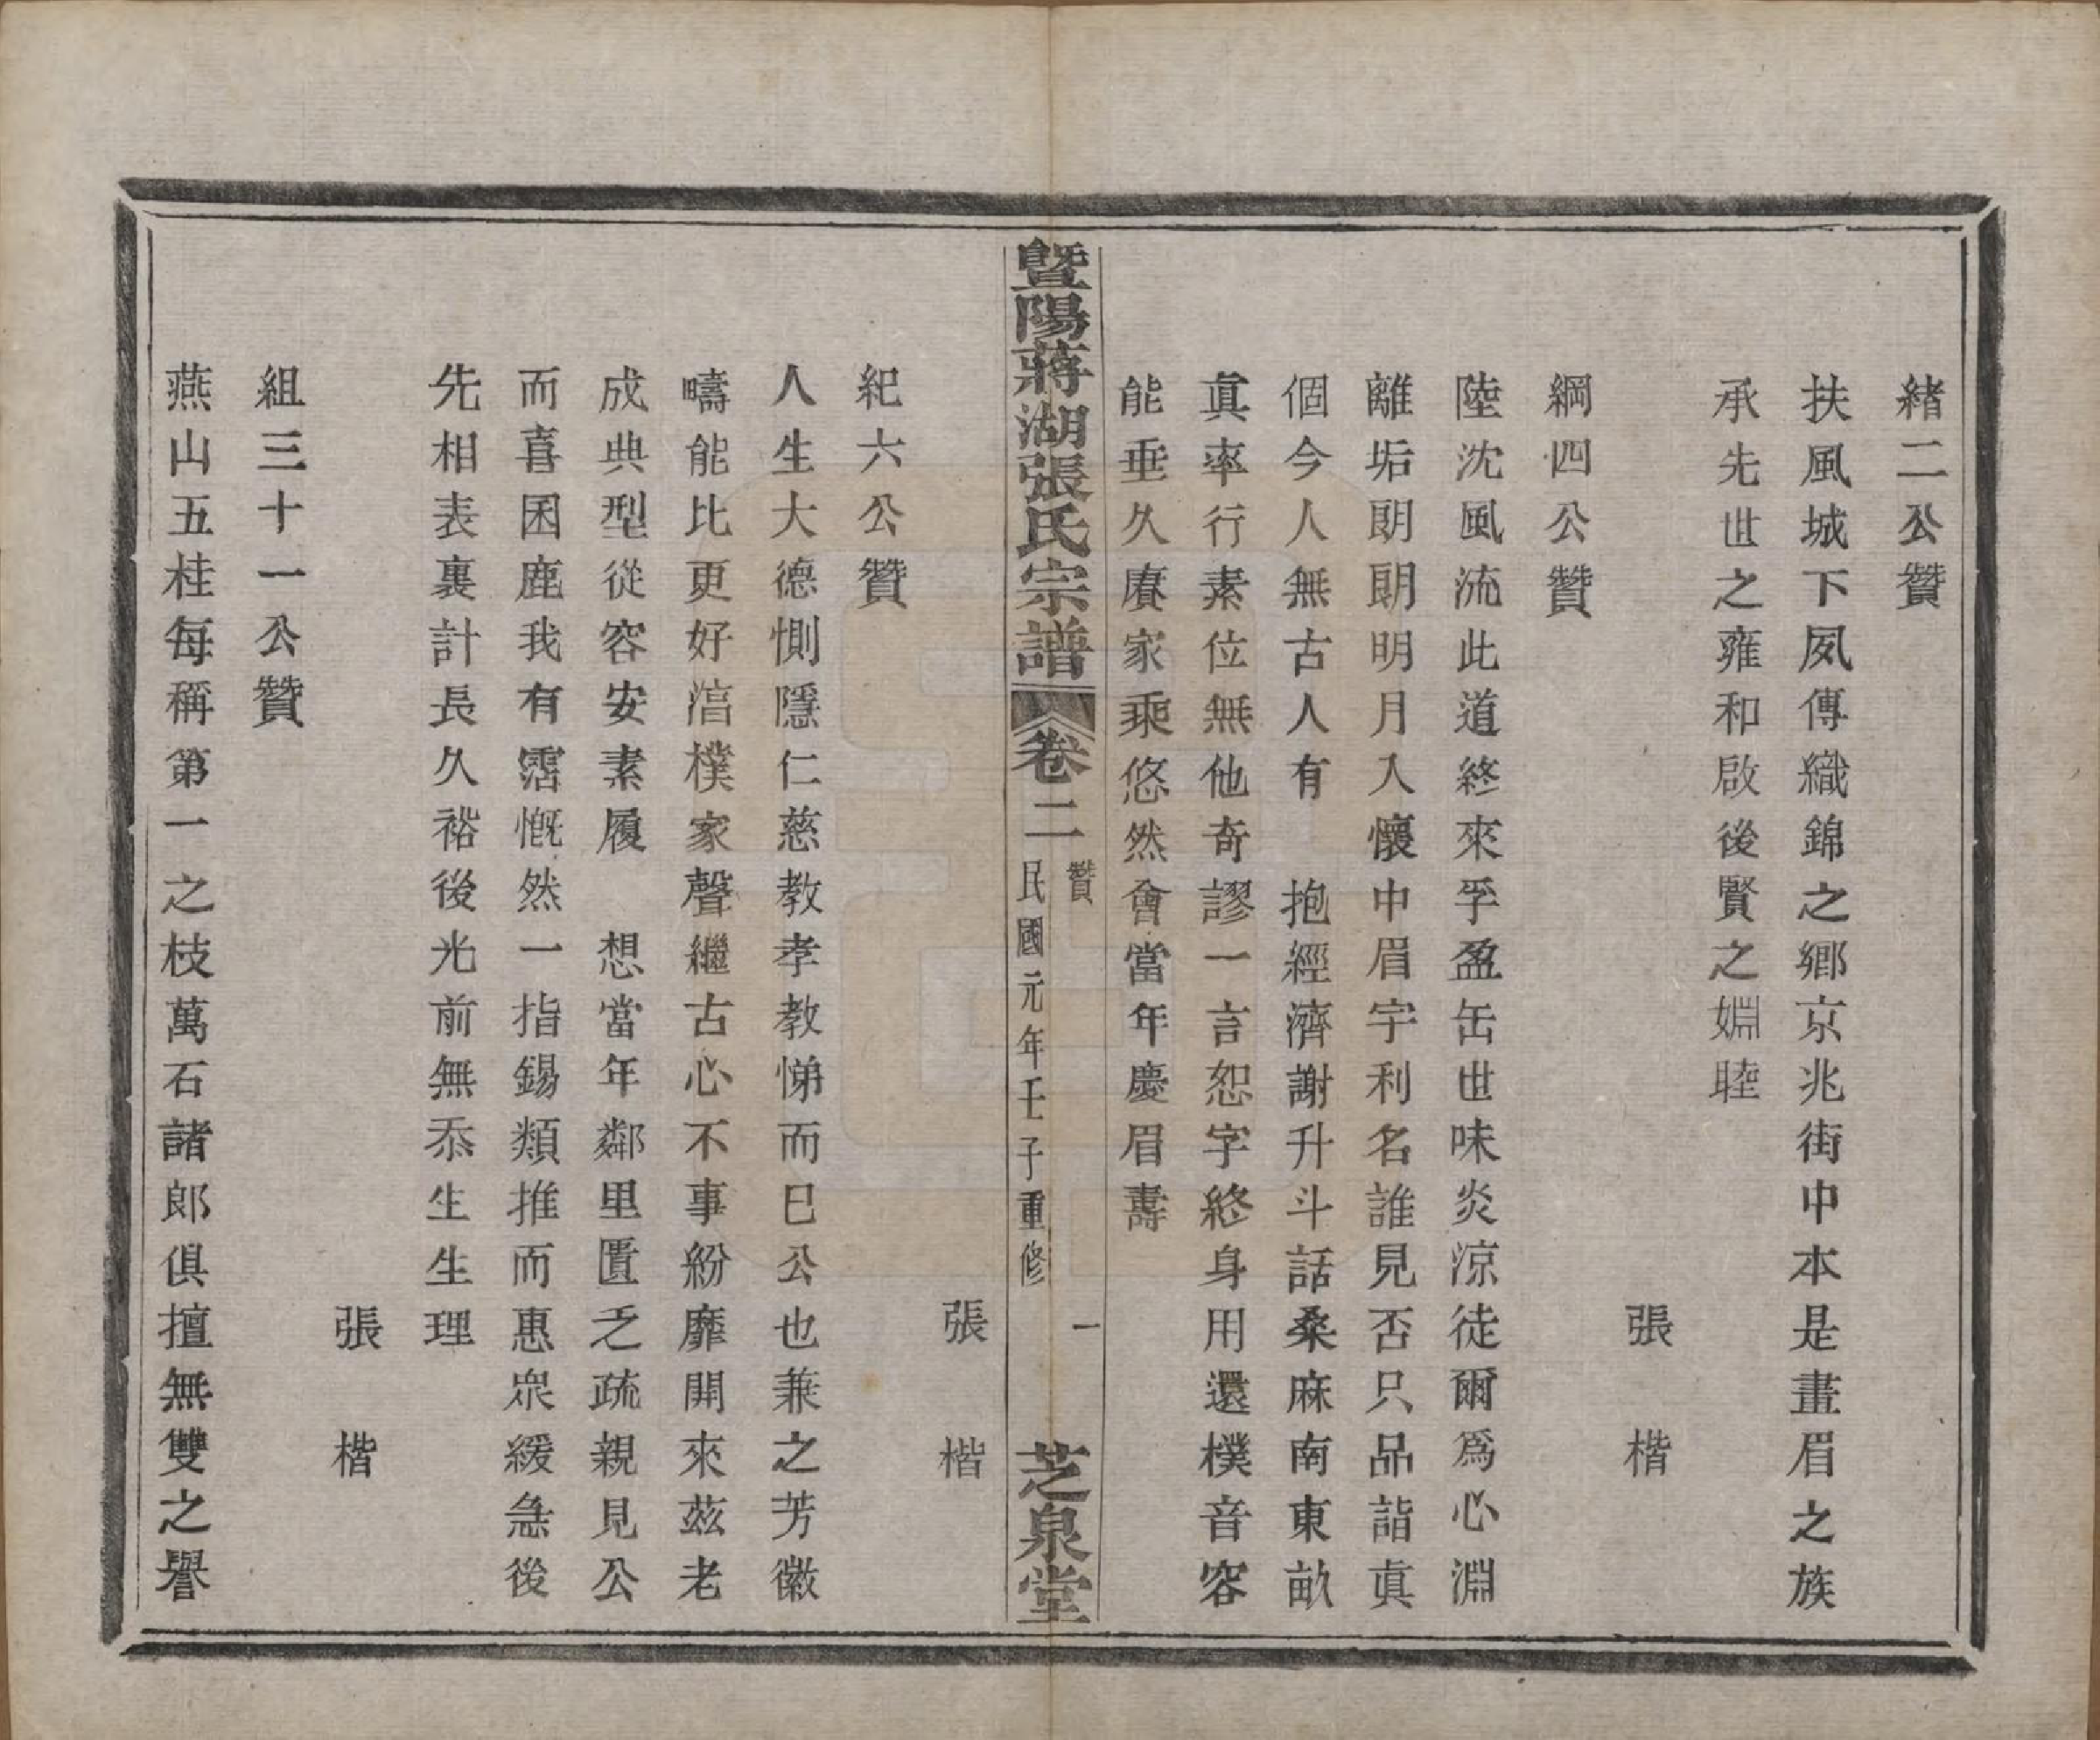 緒二公贊
扶風城下夙傳織錦之鄉京兆街中本是畫眉之族
承先世之雍和啟後賢之婣睦
張　楷
綱四公贊
陸沈風流此道終來孚盈缶世味炎涼徒爾爲心淵
離垢朗朗明月入懷中眉宇利名誰見否只品詣眞
個今人無古人有　抱經濟謝升斗話桑麻南東畝
眞率行素位無他奇謬一言恕字終身用還樸音容
能垂久賡家乘悠然會當年慶眉壽
暨陽蔣湖張氏宗譜　卷二　贊　民國元年壬子重修　一　芝泉堂
張　楷
紀六公贊
人生大德惻隱仁慈教孝教悌而已公也兼之芳徽
疇能比更好湻樸家聲繼古心不事紛靡開來茲老
成典型從容安素履　想當年鄰里匱乏疏親見公
而喜囷鹿我有霑慨然一指錫類推而惠眾緩急後
先相表裏計長久裕後光前無忝生生理
張　楷
組三十一公贊
燕山五桂每稱第一之枝萬石諸郎俱擅無雙之譽